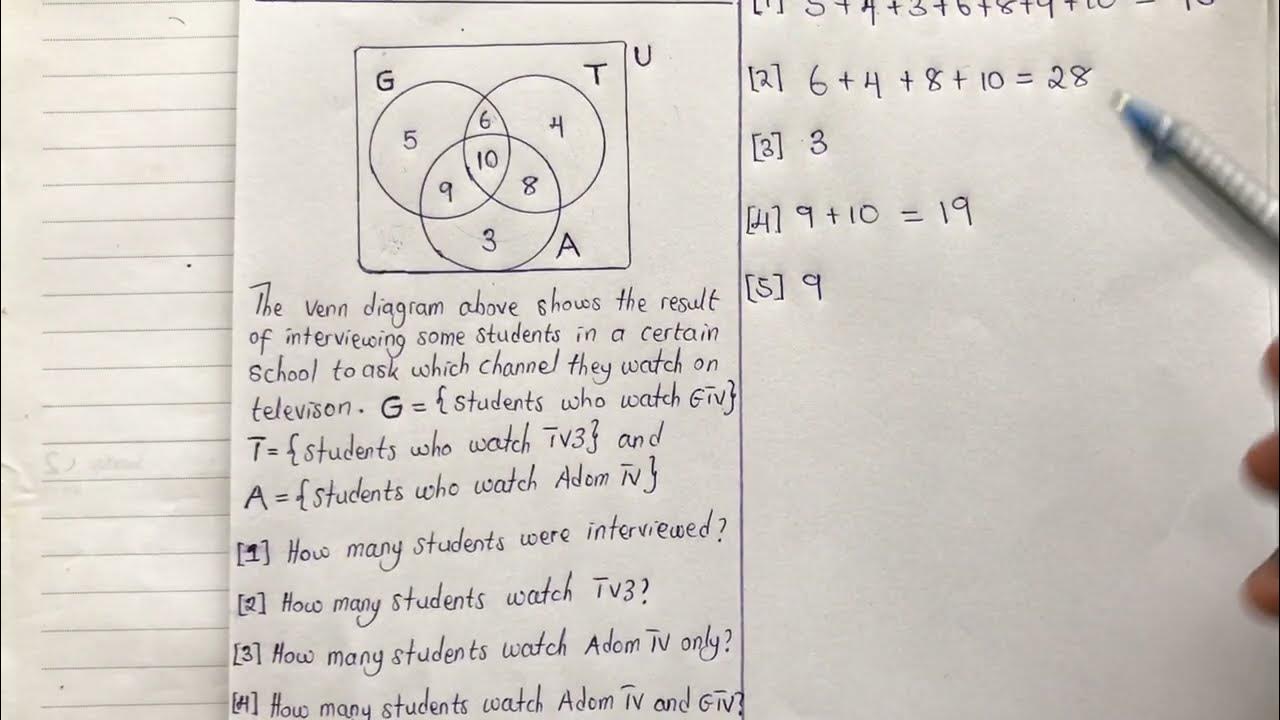 U
G
T
6
5
4
10
9
8
3
A
The Venn diagram above shows the result
of interviewing some students in a certain
school to ask which channel they watch on
televison. G = {students who watch GTV}
T = {students who watch TV3} and
A = {students who watch Adom TV}
[1] How many students were interviewed?
[2] How many students watch TV3?
[3] How many students watch Adom TV only?
[4] How many students watch Adom TV and GTV?
[1] 5 + 4 + 3 + 6 + 8 + 9 + 10 =
[2] 6 + 4 + 8 + 10 = 28
[3] 3
[4] 9 + 10 = 19
[5] 9